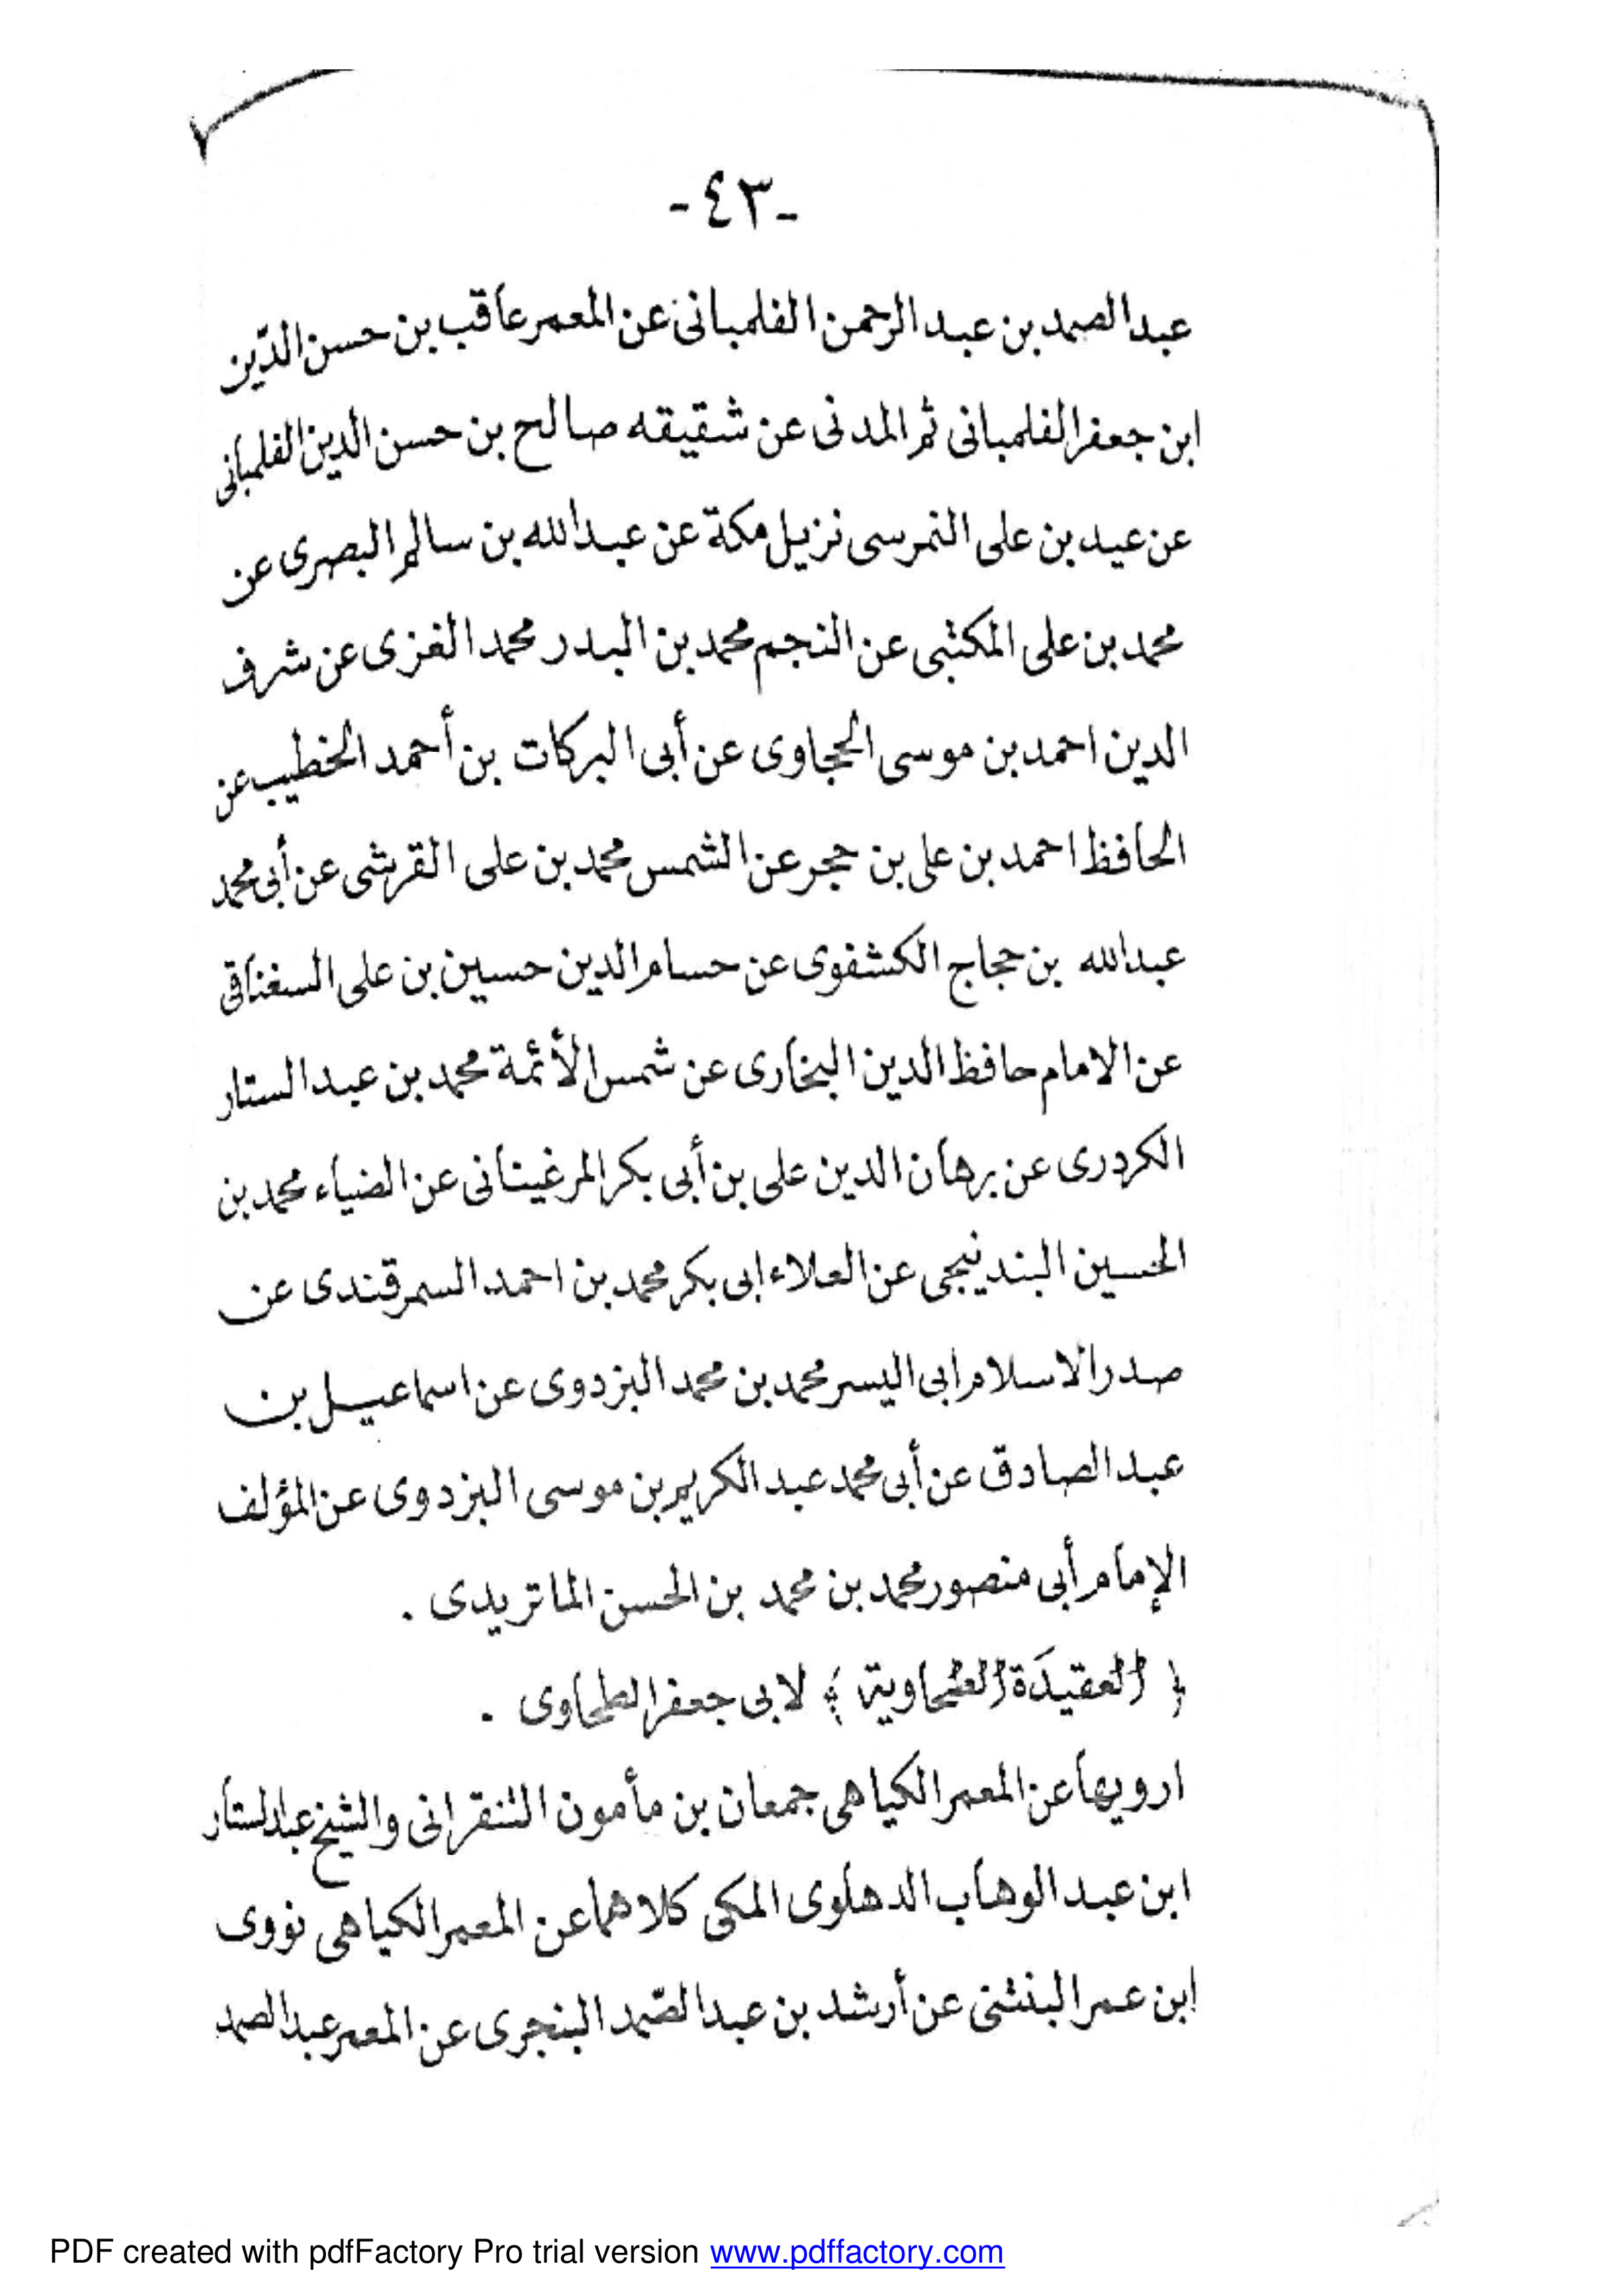 -٤٣-
عبد الصمد بن عبد الرحمن الفلمبانى عن المعمر عاقب بن حسن الدّين
ابن جعفر الفلمبانى ثم المدنى عن شقيقه صالح بن حسن الدين الفلمبانى
عن عيد بن على النمرسى نزيل مكة عن عبد الله بن سالم البصرى عن
محمد بن على المكتبى عن النجم محمد بن البدر محمد الغزى عن شرف
الدين احمد بن موسى الحجاوى عن أبى البركات بن أحمد الخطيب عن
الحافظ احمد بن على بن حجر عن الشمس محمد بن على القرشى عن أبى محمد
عبد الله بن حجاج الكشفوى عن حسام الدين حسين بن على السغناقى
عن الامام حافظ الدين البخارى عن شمس الأئمة محمد بن عبد الستار
الكردرى عن برهان الدين على بن أبى بكر المرغينانى عن الضياء محمد بن
الحسين البندنيجى عن العلاء ابى بكر محمد بن احمد السمرقندى عن
صدر الاسلام ابى اليسر محمد بن محمد البزدوى عن اسماعيل بن
عبد الصادق عن أبى محمد عبد الكريم بن موسى البزدوى عن المؤلف
الإمام أبى منصور محمد بن محمد بن الحسن الماتريدى .
﴿ العقيدَة الطحاوية ﴾ لابى جعفر الطحاوى .
ارويها عن المعمر الكياهى جمعان بن مأمون التنقرانى والشيخ عبد الستار
ابن عبد الوهاب الدهلوى المكى كلاهما عن المعمر الكياهى نووى
ابن عمر البنتنى عن أرشد بن عبد الصّمد البنجرى عن المعمر عبد الصمد
PDF created with pdfFactory Pro trial version www.pdffactory.com